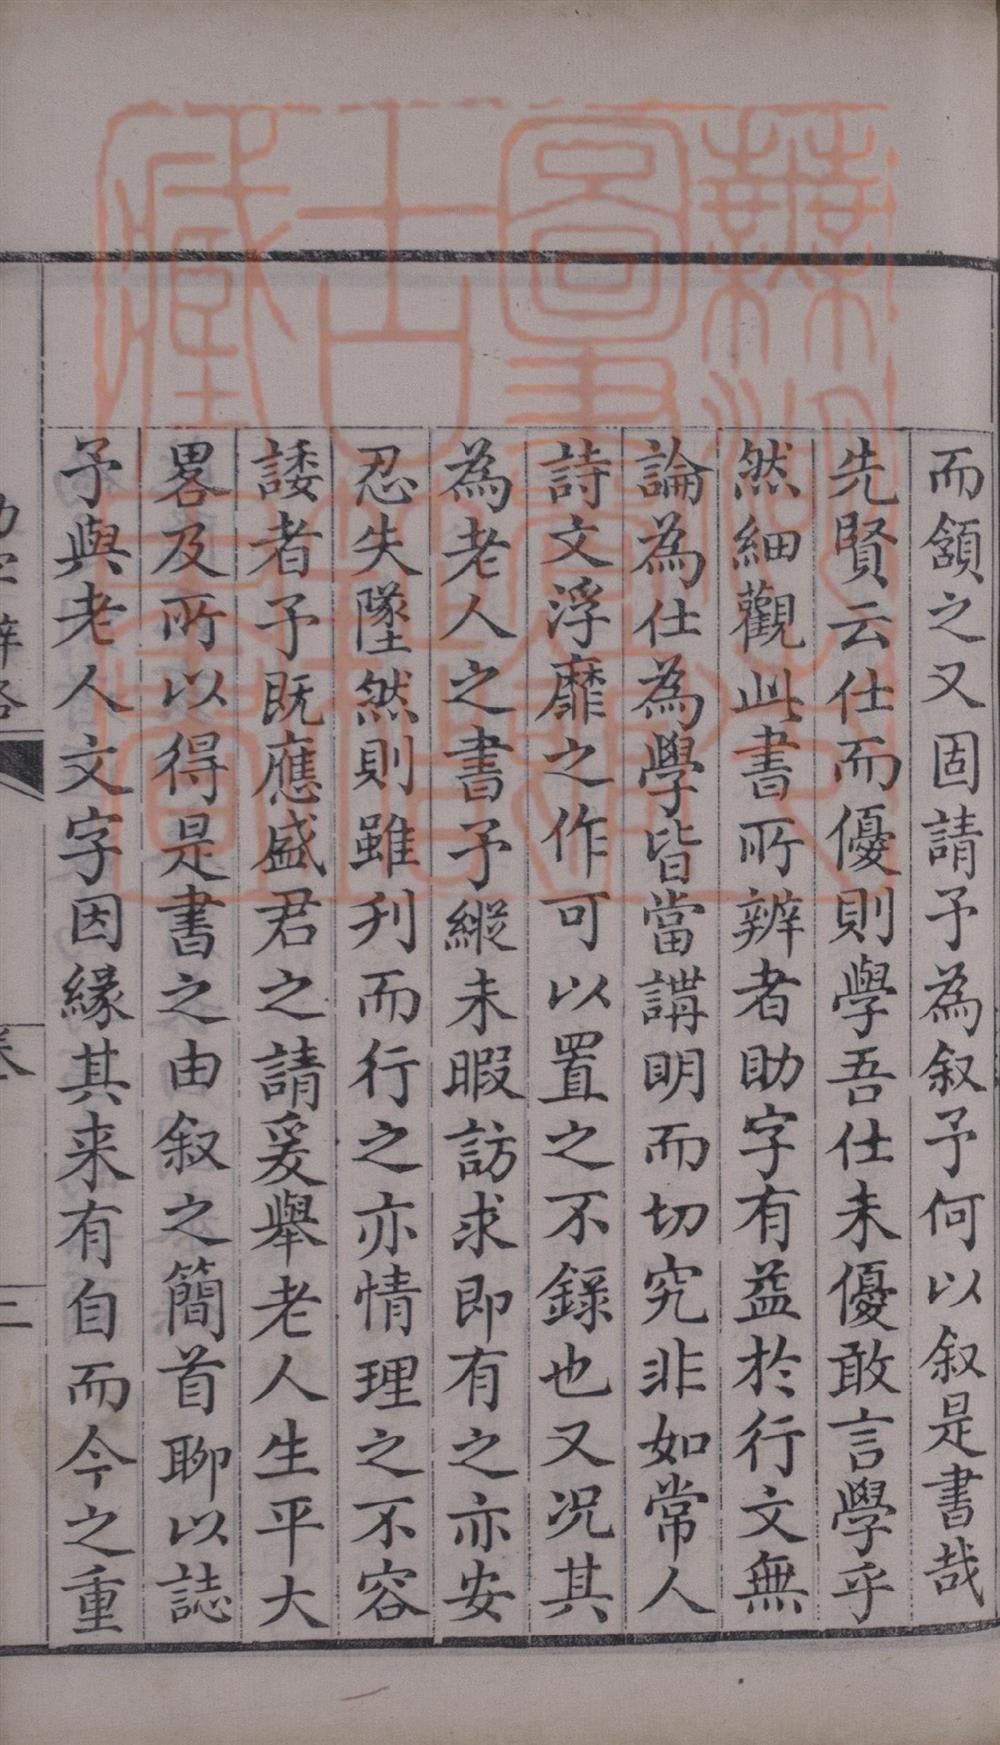 而頷之又固請予為叙予何以叙是書哉
先賢云仕而優則學吾仕未優敢言學乎
然細觀此書所辨者助字有益於行文無
論為仕為學皆當講明而切究非如常人
詩文浮靡之作可以置之不錄也又况其
為老人之書予縱未暇訪求即有之亦安
忍失墜然則雖刋而行之亦情理之不容
諉者予既應盛君之請爰舉老人生平大
畧及所以得是書之由叙之簡首聊以誌
予與老人文字因緣其来有自而今之重